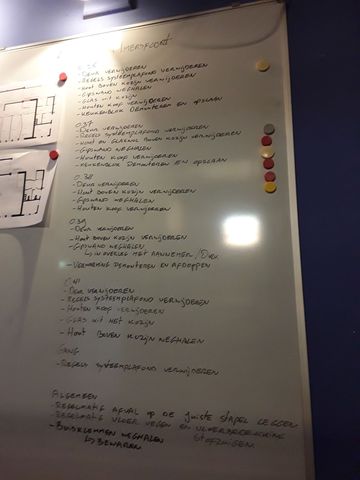 Amersfoort
0.36
- Deur verwijderen
- Regels systeemplafond verwijderen
- Hout boven kozijn verwijderen
- Gipswand weghalen
- Glas uit kozijn
- Houten koof verwijderen
- Keukenblok demonteren en opslaan
0.37
- Deur verwijderen
- Regels systeemplafond verwijderen
- Hout en glas boven kozijn verwijderen
- Gipswand weghalen
- Houten koof verwijderen
- Keukenblok demonteren en opslaan
0.38
- Deur verwijderen
- Hout boven kozijn verwijderen
- Gipswand weghalen
- Houten koof verwijderen
0.39
- Deur verwijderen
- Hout boven kozijn verwijderen
- Gipswand weghalen
↳ in overleg met aannemer /
- Verwarming demonteren en afdoppen
- Deur verwijderen
- Regels systeemplafond verwijderen
- Houten koof verwijderen
- Glas uit het kozijn
- Hout boven kozijn weghalen
Gang
- Regels systeemplafond verwijderen
Algemeen
- Regelmatig afval op de juiste stapel leggen
- Regelmatig vloer vegen en vloerbedekking stofzuigen
- Buisklemmen weghalen
↳ bewaren